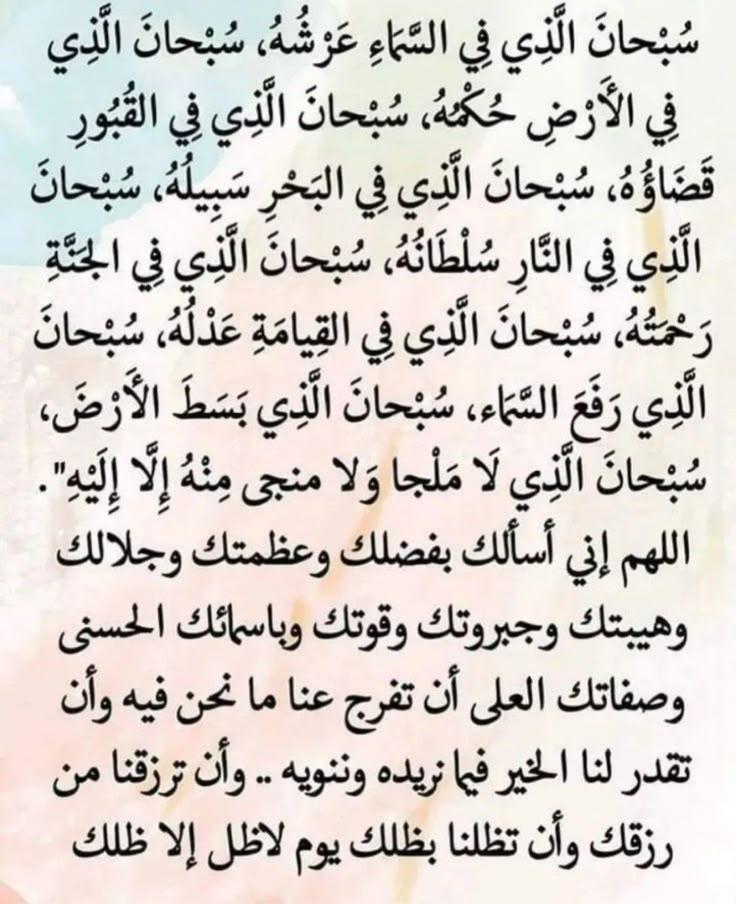 سُبْحانَ الَّذِي فِي السَّمَاءِ عَرْشُهُ، سُبْحانَ الَّذِي
فِي الأَرْضِ حُكْمُهُ، سُبْحانَ الَّذِي فِي القُبُورِ
قَضَاؤُهُ، سُبْحانَ الَّذِي فِي البَحْرِ سَبِيلُهُ، سُبْحانَ
الَّذِي فِي النَّارِ سُلْطَانُهُ، سُبْحانَ الَّذِي فِي الجَنَّةِ
رَحْمَتُهُ، سُبْحانَ الَّذِي فِي القِيامَةِ عَدْلُهُ، سُبْحانَ
الَّذِي رَفَعَ السَّمَاء، سُبْحانَ الَّذِي بَسَطَ الأَرْضَ،
سُبْحانَ الَّذِي لَا مَلْجا وَلا منجى مِنْهُ إِلَّا إِلَيْهِ".
اللهم إني أسألك بفضلك وعظمتك وجلالك
وهيبتك وجبروتك وقوتك وباسمائك الحسنى
وصفاتك العلى أن تفرج عنا ما نحن فيه وأن
تقدر لنا الخير فيما نريده وننويه .. وأن ترزقنا من
رزقك وأن تظلنا بظلك يوم لاظل إلا ظلك